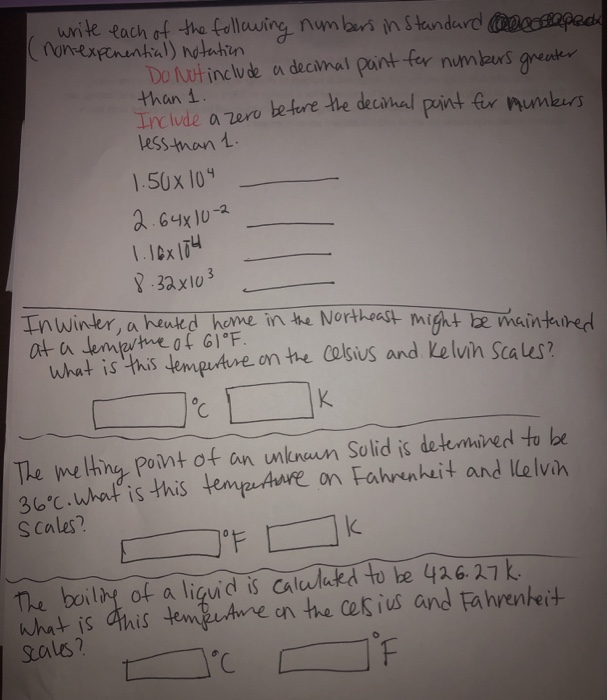 write each of the following numbers in standard
(non-exponential) notation
Do Not include a decimal point for numbers greater
than 1.
Include a zero before the decimal point for numbers
less than 1.
1.50x10⁴
2.64x10⁻²
1.10x10⁻⁴
8.32x10³
In winter, a heated home in the Northeast might be maintained
at a tempertue of 61°F.
What is this temperture on the Celsius and Kelvin Scales?
°C K
The melting point of an unknown Solid is determined to be
36°C. What is this temperture on Fahrenheit and Kelvin
Scales?
°F K
The boiling of a liquid is calculated to be 426.27 K.
What is this temperture on the celsius and Fahrenheit
scales?
°C °F